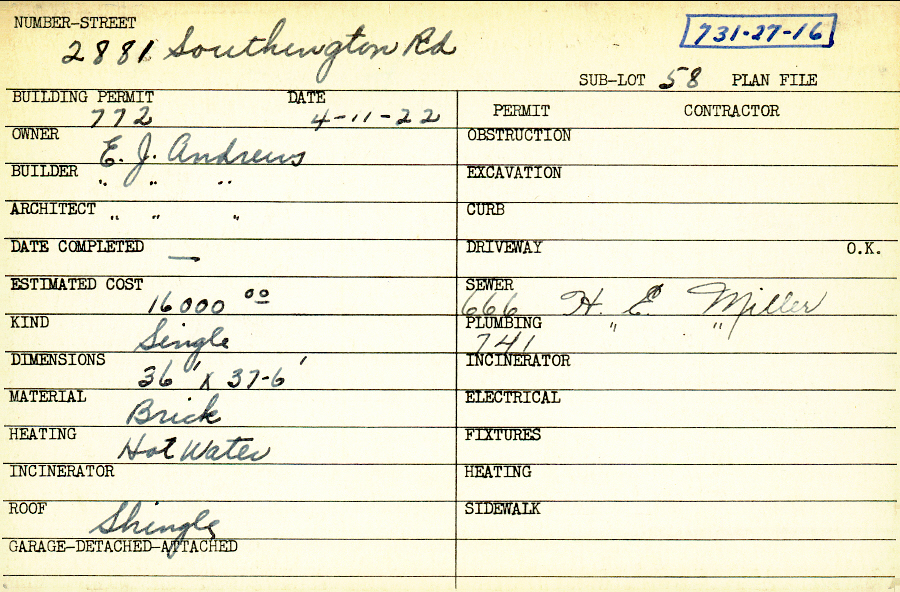 NUMBER-STREET
2881 Southington Rd
731-27-16
SUB-LOT 58 PLAN FILE
BUILDING PERMIT DATE
772 4-11-22
PERMIT CONTRACTOR
OWNER
E. J. Andrews
OBSTRUCTION
BUILDER " " "
EXCAVATION
ARCHITECT " " "
CURB
DATE COMPLETED —
DRIVEWAY O.K.
ESTIMATED COST
16000 00
SEWER
666 H. E. Miller
KIND
Single
PLUMBING " "
741
DIMENSIONS
36' x 37-6'
INCINERATOR
MATERIAL
Brick
ELECTRICAL
HEATING
Hot Water
FIXTURES
INCINERATOR
HEATING
ROOF
Shingle
SIDEWALK
GARAGE-DETACHED-ATTACHED